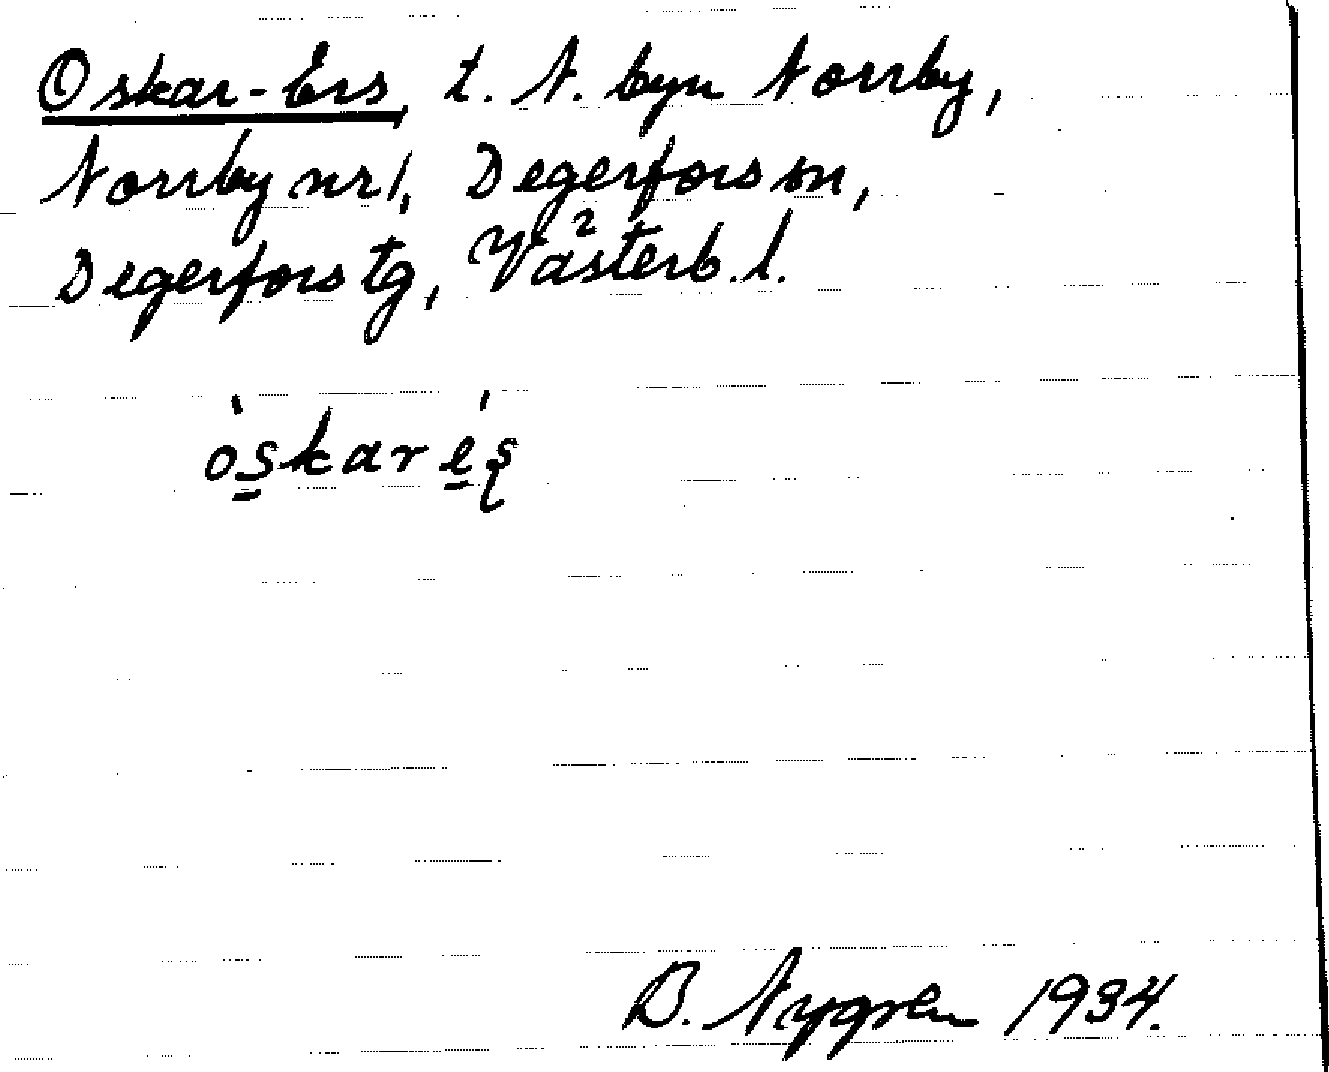 Oskar-Ers, t. N. byn Norrby,
Norrby nr 1, Degerfors sn,
Degerfors tg, Västerb. l.
òskarés
B. Nygren 1934.